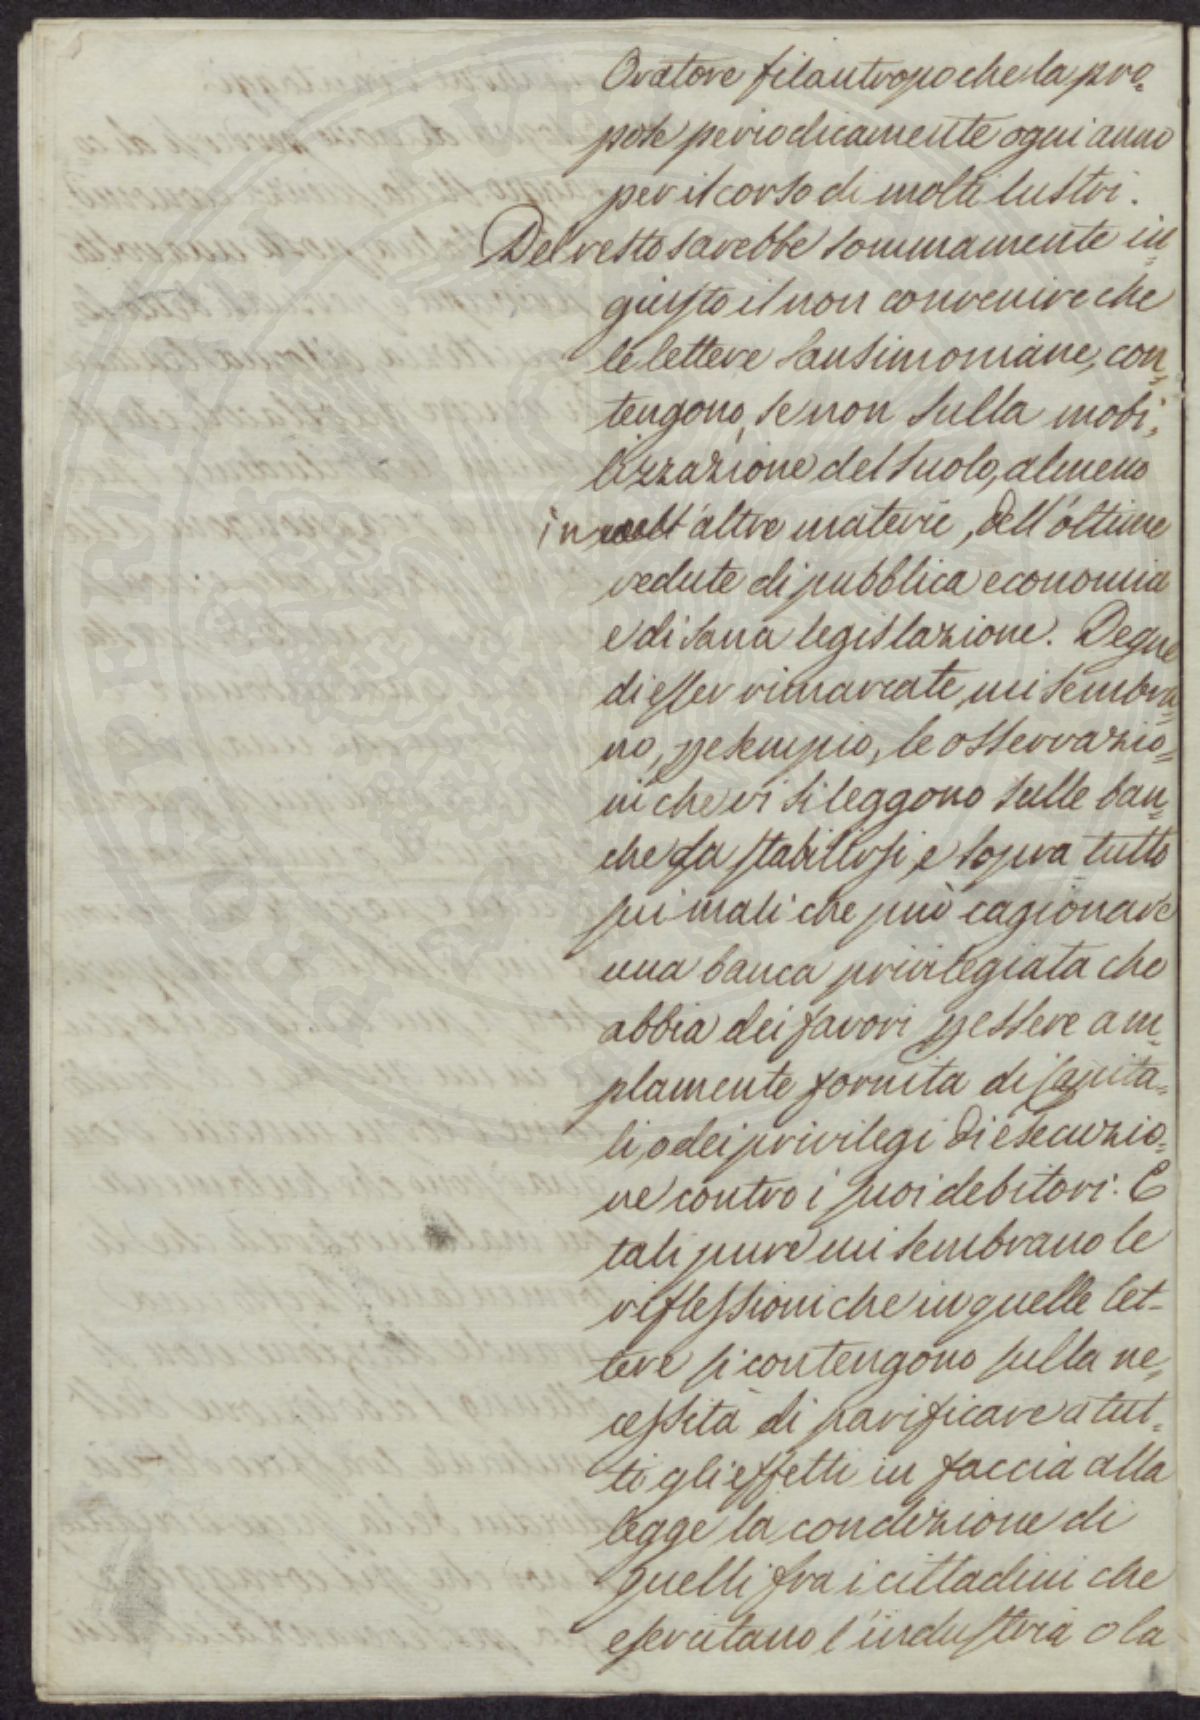 Oratore filantropo che la pro=
pose periodicamente ogni anno
per il corso di molti lustri.
Del resto sarebbe sommamente in=
giusto il non convenire che
le lettere Sansimoniane, con=
tengono, se non sulla mobi=
lizzazione del suolo, almeno
in molt'altre materie, dell'ottime
vedute di pubblica economia
e di sana legislazione. Degne
di esser rimarcate, mi sembra=
no, p esempio, le osservazio=
ni che vi si leggono sulle ban=
che da stabilirsi, e sopra tutto
sui mali che può cagionare
una banca privilegiata che
abbia dei favori p essere am=
plamente fornita di capita=
li, o dei privilegi di esecuzio=
ne contro i suoi debitori. E
tali pure mi sembrano le
riflessioni che in quelle let=
tere si contengono sulla ne=
cessità di parificare a tut=
ti gli effetti in faccia alla
legge la condizione di
quelli fra i cittadini che
esercitano l'industria o la